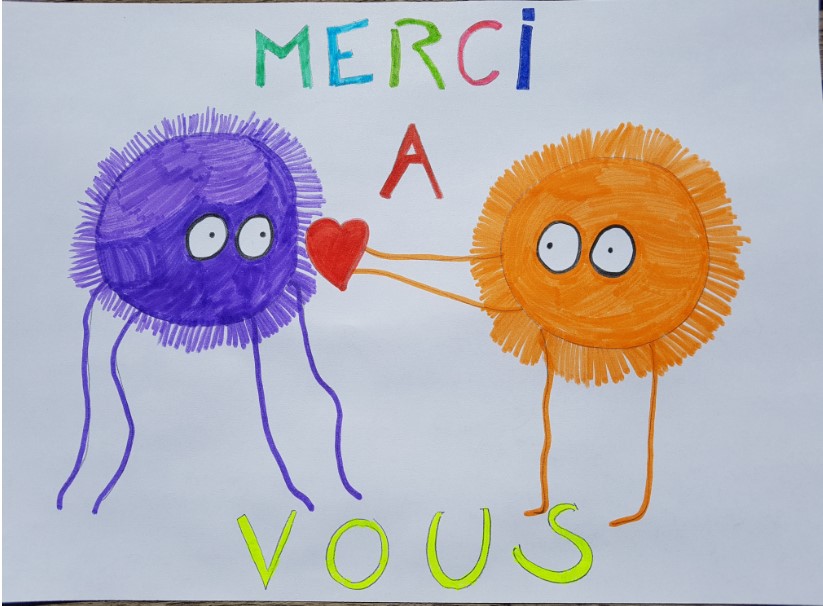 MERCi
A
VOUS